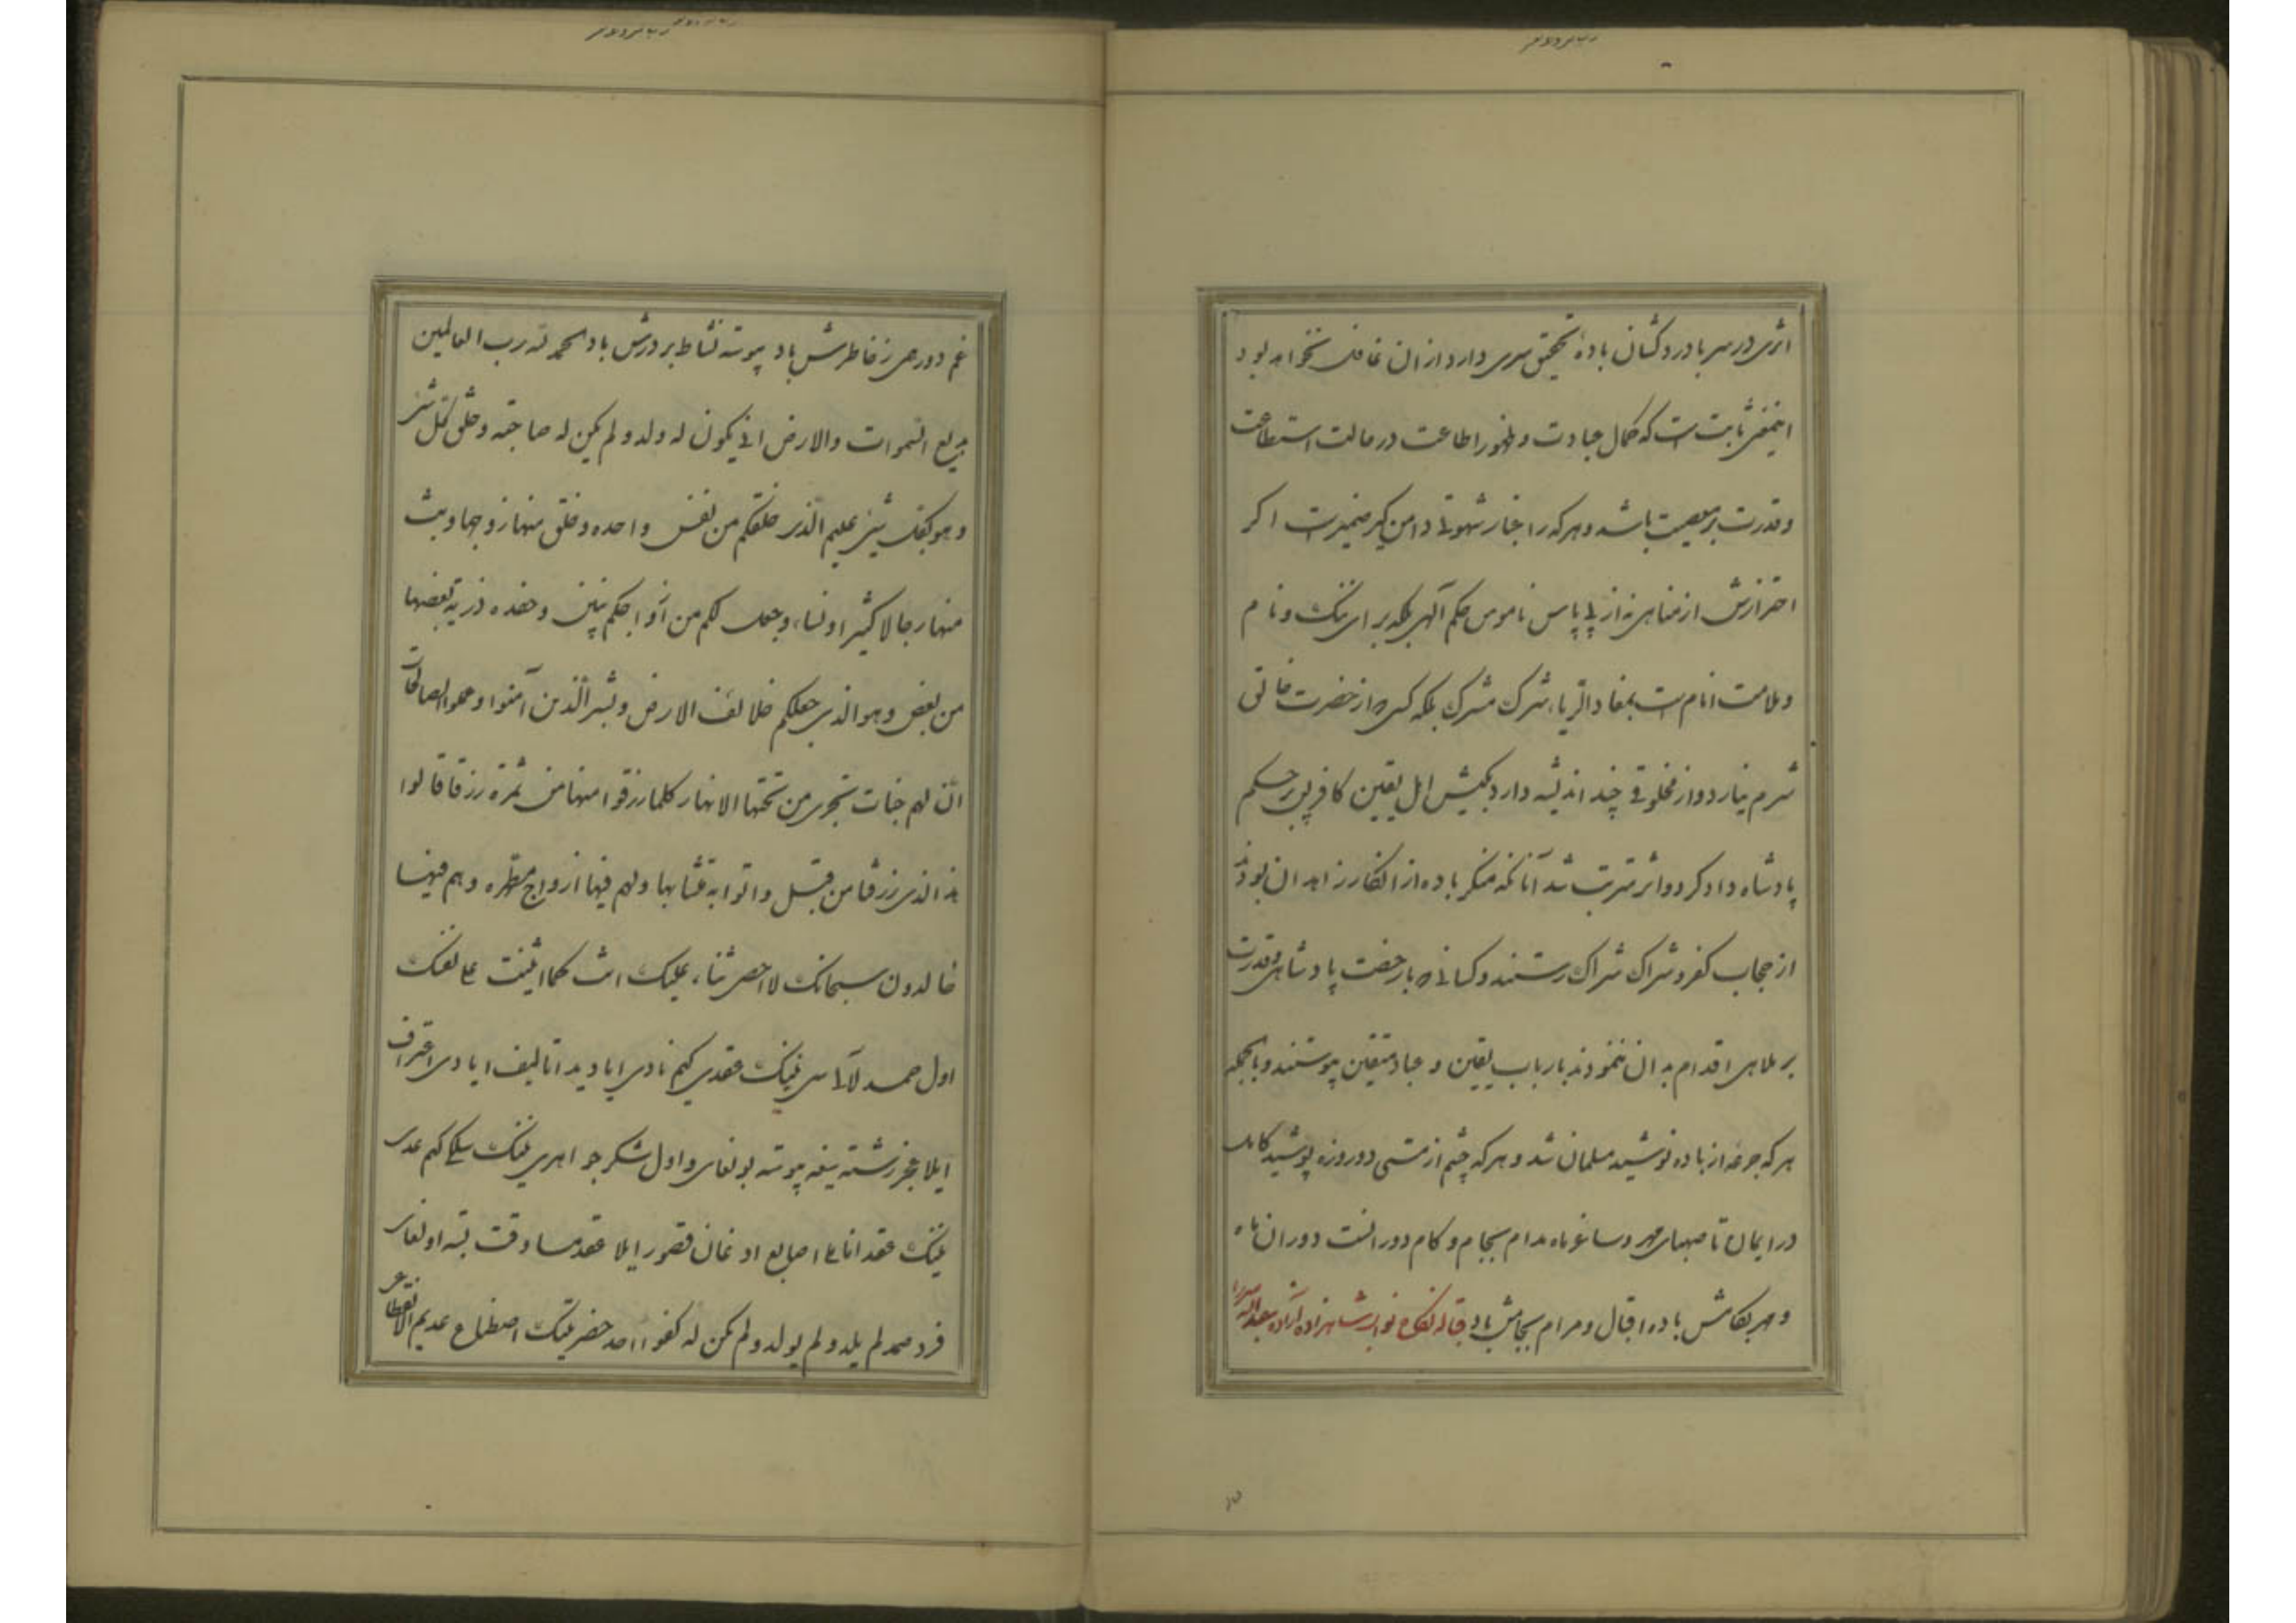 اثری در سر با دردکشان باده تحقیق سری دارد از ان غافل نخواهد بود
اینمعنی ثابت است که کمال عبادت و ظهور اطاعت در حالت استطاعت
و قدرت بر معصیت باشد و هر که را غبار شهوتی دامن کیر ضمیرست اکر
احترازش از مناهی نه از پی پاس ناموس حکم آلهی بلکه برای ننک و نام
و ملامت انام است بمفاد الریاء شرک مشرک بلکه کسی که از حضرت خالق
شرم نیارد و از مخلوقی چند اندیشه دارد بکیش اهل یقین کافر پس حکم
پادشاه دادکر دو اثر مترتب شد آنانکه منکر باده از انکار زاهدان بودند
از حجاب کفر و شراک شراک رستند و کسانی که با رخصت پادشاهی و قدرت
بر ملاهی اقدام به ان ننمودند بارباب یقین و عباد متقین پیوستند و بالجمله
هر که جرعه از باده نوشید مسلمان شد و هر که چشم از مستی دو روزه پوشید کامل
در ایمان تا صهبای مهر و ساغر ماه مدام بجام و کام دور انست دوران ماه
و مهر بکامش باده اقبال و مرام بجامش باد قباله نکاح نواب شاهزاده آزاده عبدالله میرزا
غم دور همی ز خاطرش باد پیوسته نشاط بر درش باد الحمد لله رب العالمین
بدیع السموات والارض انی یکون له ولد و لم یکن له صاحبة و خلق کل شئ
و هو بکل شئ علیم الذی خلقکم من نفس واحده و خلق منها زوجها و بث
منها رجالا کثیرا و نساء و جعل لکم من ازواجکم بنین و حفده ذریة بعضها
من بعض و هو الذی جعلکم خلائف الارض و بشر الذین آمنوا و عملوا الصالحات
ان لهم جنات تجری من تحتها الانهار کلما رزقوا منها من ثمرة رزقا قالوا
هذا الذی رزقنا من قبل و اتوا به متشابها و لهم فیها ازواج مطهره و هم فیها
خالدون سبحانک لا احصی ثناء علیک انت کما اثنیت علی نفسک
اول حمد لآلی سی نینک عقدی کیم نادی ایادی دا تالیف ایادی اعتراف
ایلا عجز رشته سیغه پیوسته بولغای و اول شکر جواهری نینک سلکی کیم عدی
نینک عقد انامل اصابع ادغان قصور ایلا عقد مساوقت بسته اولغای
فرد صمد لم یلد و لم یولد و لم یکن له کفوا احد حضرتینک اصطناع عدیم الانقطاعی